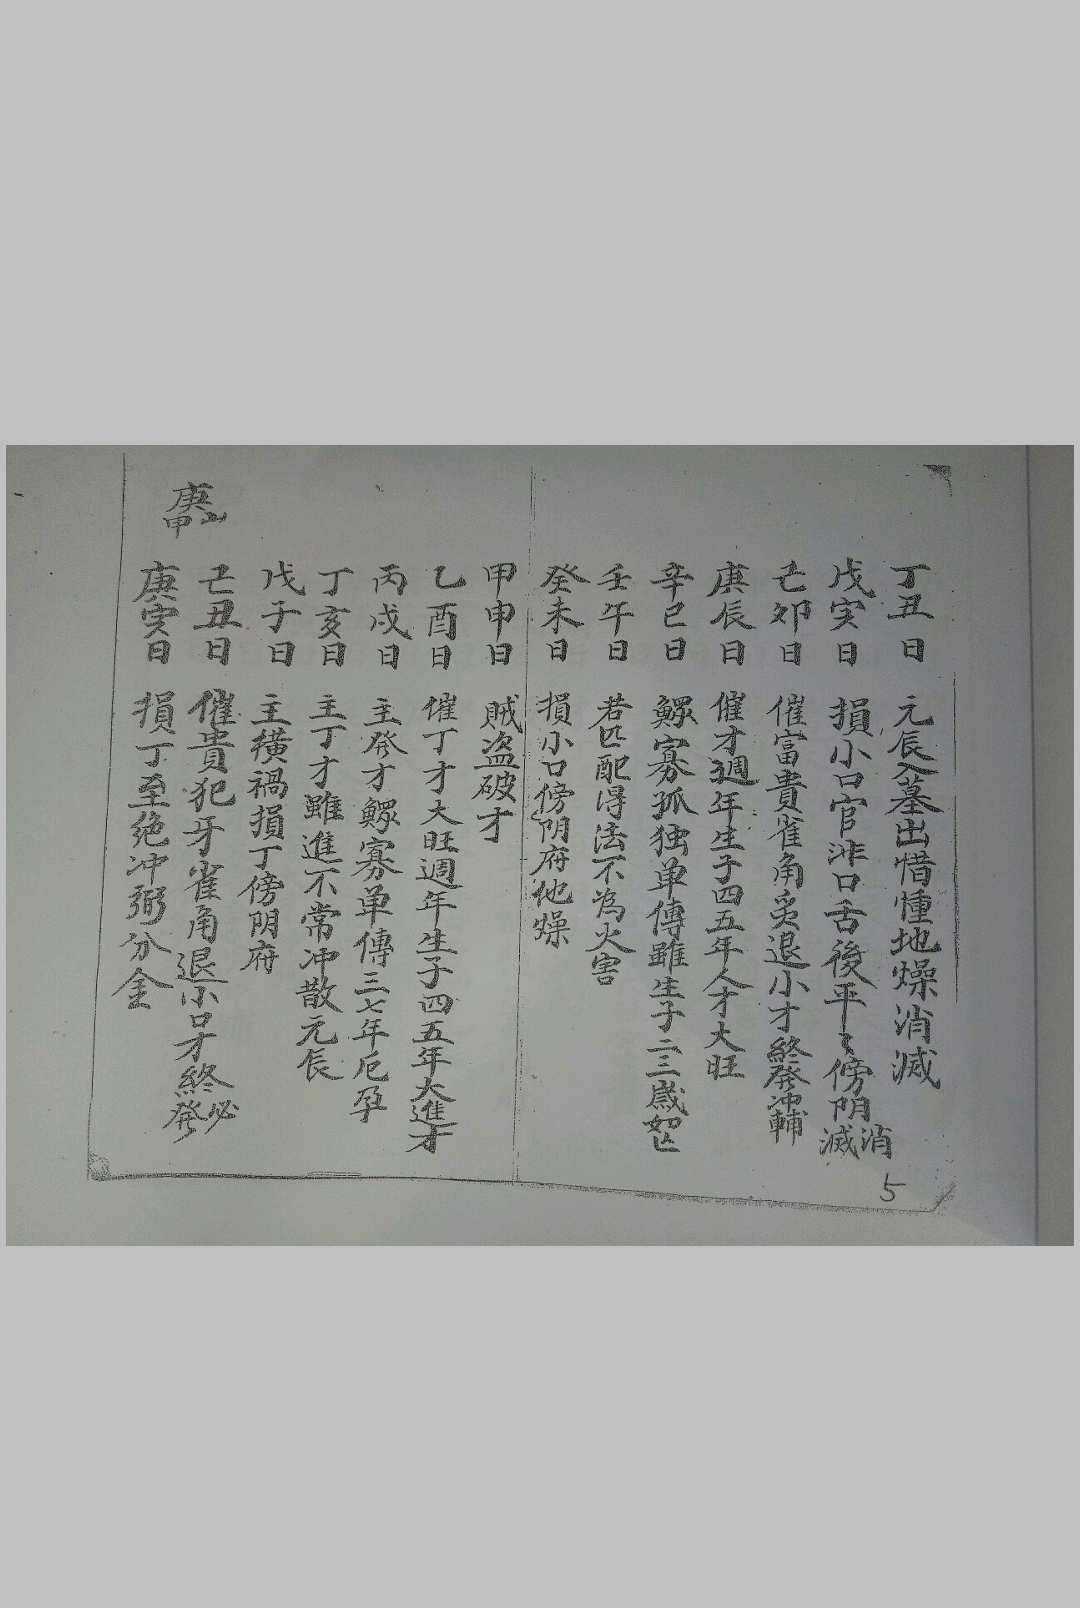 丁丑日 元辰入墓出惜憧地燥消滅
戊寅日 損小口官非口舌後平々傍阴消滅
己卯日 催富貴雀角爻退小才終發冲輔
庚辰日 催才週年生子四五年人才大旺
辛巳日 鰥寡孤独单傳雖生子二三歲如亡
壬午日 若匹配得法不為火害
癸未日 損小口傍阴府他燥
甲申日 賊盗破才
乙酉日 催丁才大旺週年生子四五年大進才
丙戌日 主發才鰥寡单傳三七年厄孕
丁亥日 主丁才雖進不常冲散元辰
戊子日 主横禍損丁傍阴府
己丑日 催貴犯牙雀角退小口才終必發
庚寅日 損丁至绝冲弼分金
庚山甲
5